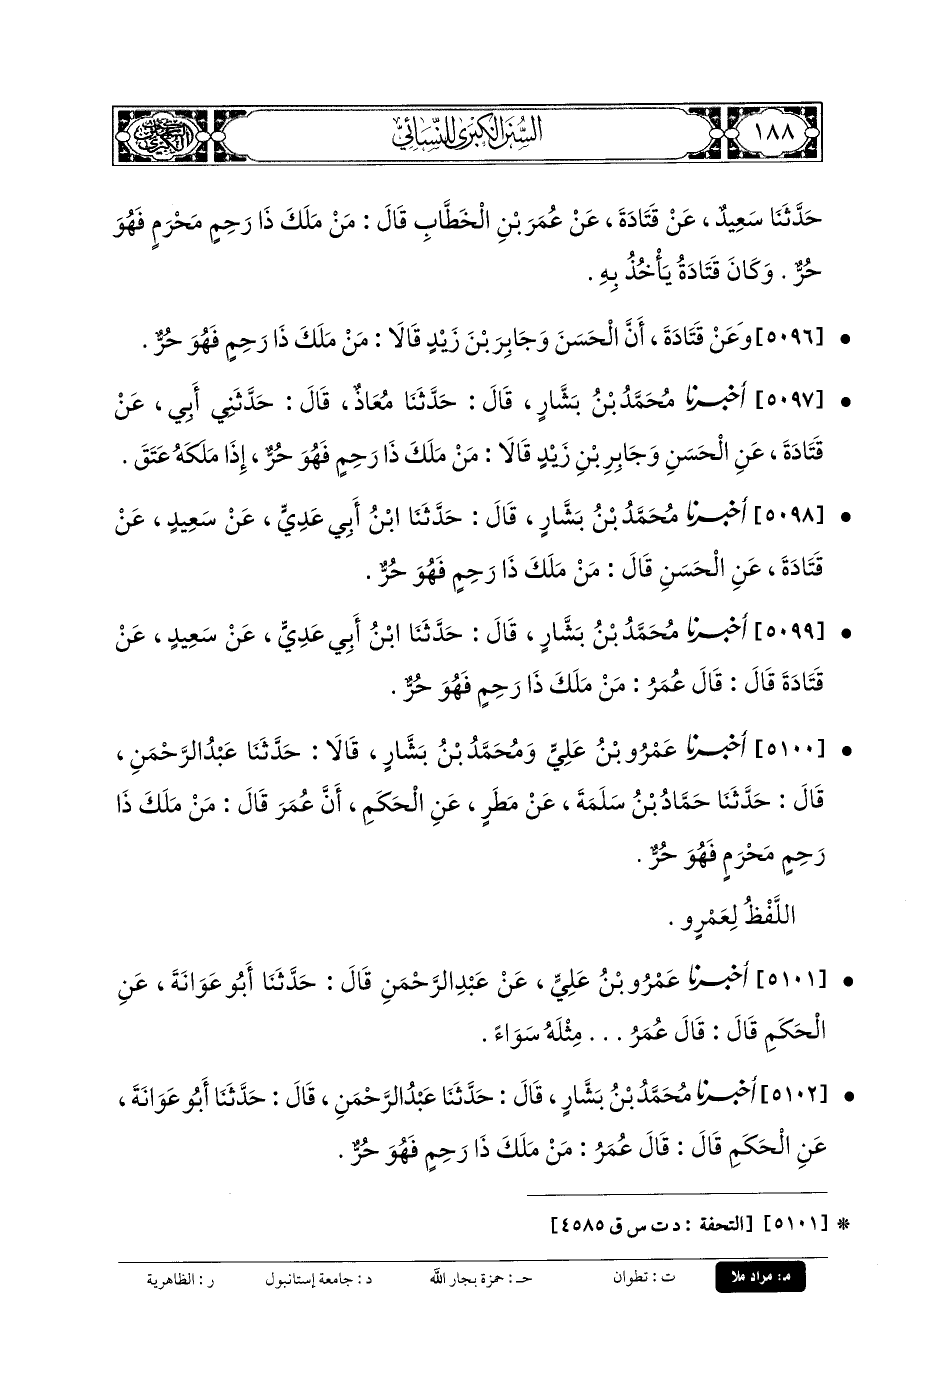 ١٨٨
السُّنَنُ الْكُبْرَى لِلنَّسَائِيِّ
حَدَّثَنَا سَعِيدٌ ، عَنْ قَتَادَةَ ، عَنْ عُمَرَ بْنِ الْخَطَّابِ قَالَ : مَنْ مَلَكَ ذَا رَحِمٍ مَحْرَمٍ فَهُوَ
حُرٌّ . وَكَانَ قَتَادَةُ يَأْخُذُ بِهِ .
• [٥٠٩٦] وَعَنْ قَتَادَةَ ، أَنَّ الْحَسَنَ وَجَابِرَ بْنَ زَيْدٍ قَالَا : مَنْ مَلَكَ ذَا رَحِمٍ فَهُوَ حُرٌّ .
• [٥٠٩٧] أَخْبَرَنَا مُحَمَّدُ بْنُ بَشَّارٍ ، قَالَ : حَدَّثَنَا مُعَاذٌ ، قَالَ : حَدَّثَنِي أَبِي ، عَنْ
قَتَادَةَ ، عَنِ الْحَسَنِ وَجَابِرِ بْنِ زَيْدٍ قَالَا : مَنْ مَلَكَ ذَا رَحِمٍ فَهُوَ حُرٌّ ، إِذَا مَلَكَهُ عَتَقَ .
• [٥٠٩٨] أَخْبَرَنَا مُحَمَّدُ بْنُ بَشَّارٍ ، قَالَ : حَدَّثَنَا ابْنُ أَبِي عَدِيٍّ ، عَنْ سَعِيدٍ ، عَنْ
قَتَادَةَ ، عَنِ الْحَسَنِ قَالَ : مَنْ مَلَكَ ذَا رَحِمٍ فَهُوَ حُرٌّ .
• [٥٠٩٩] أَخْبَرَنَا مُحَمَّدُ بْنُ بَشَّارٍ ، قَالَ : حَدَّثَنَا ابْنُ أَبِي عَدِيٍّ ، عَنْ سَعِيدٍ ، عَنْ
قَتَادَةَ قَالَ : قَالَ عُمَرُ : مَنْ مَلَكَ ذَا رَحِمٍ فَهُوَ حُرٌّ .
• [٥١٠٠] أَخْبَرَنَا عَمْرُو بْنُ عَلِيٍّ وَمُحَمَّدُ بْنُ بَشَّارٍ ، قَالَا : حَدَّثَنَا عَبْدُالرَّحْمَنِ ،
قَالَ : حَدَّثَنَا حَمَّادُ بْنُ سَلَمَةَ ، عَنْ مَطَرٍ ، عَنِ الْحَكَمِ ، أَنَّ عُمَرَ قَالَ : مَنْ مَلَكَ ذَا
رَحِمٍ مَحْرَمٍ فَهُوَ حُرٌّ .
اللَّفْظُ لِعَمْرٍو .
• [٥١٠١] أَخْبَرَنَا عَمْرُو بْنُ عَلِيٍّ ، عَنْ عَبْدِالرَّحْمَنِ قَالَ : حَدَّثَنَا أَبُو عَوَانَةَ ، عَنِ
الْحَكَمِ قَالَ : قَالَ عُمَرُ ... مِثْلَهُ سَوَاءً .
• [٥١٠٢] أَخْبَرَنَا مُحَمَّدُ بْنُ بَشَّارٍ ، قَالَ : حَدَّثَنَا عَبْدُالرَّحْمَنِ ، قَالَ : حَدَّثَنَا أَبُو عَوَانَةَ ،
عَنِ الْحَكَمِ قَالَ : قَالَ عُمَرُ : مَنْ مَلَكَ ذَا رَحِمٍ فَهُوَ حُرٌّ .
* [٥١٠١] [التحفة : د ت س ق ٤٥٨٥]
م: مراد ملا ت : تطوان حـ : حمزة بجار الله د : جامعة إستانبول ر : الظاهرية